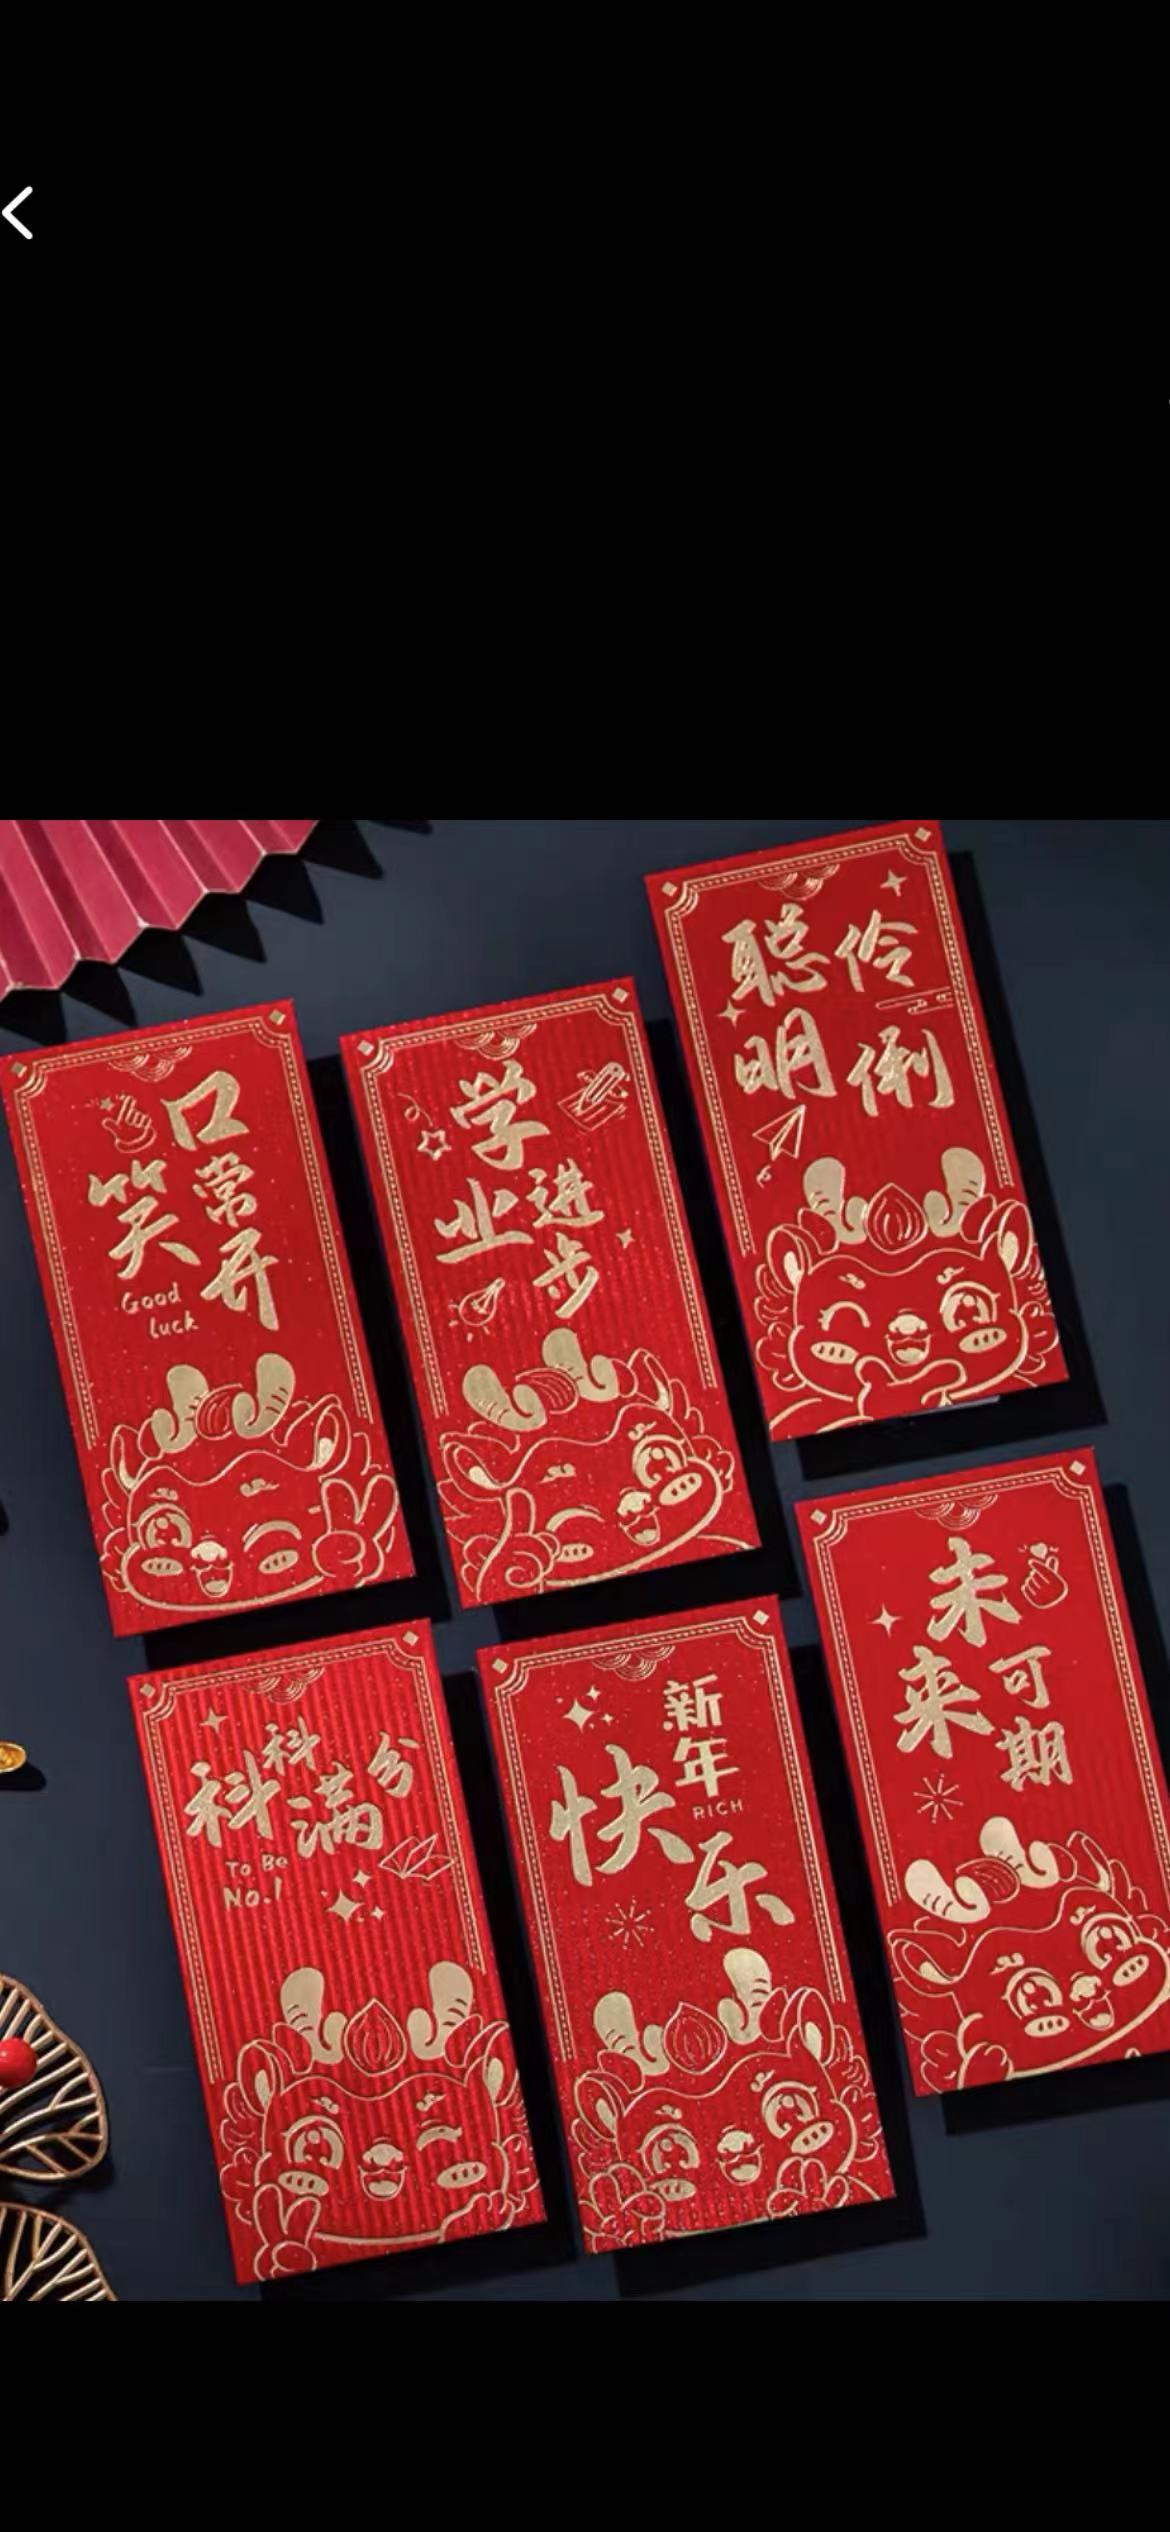 口常开
笑
Good
luck
学业
进步
聪明
伶俐
科科满分
To Be
No.1
新年
快乐
RICH
未来
可期